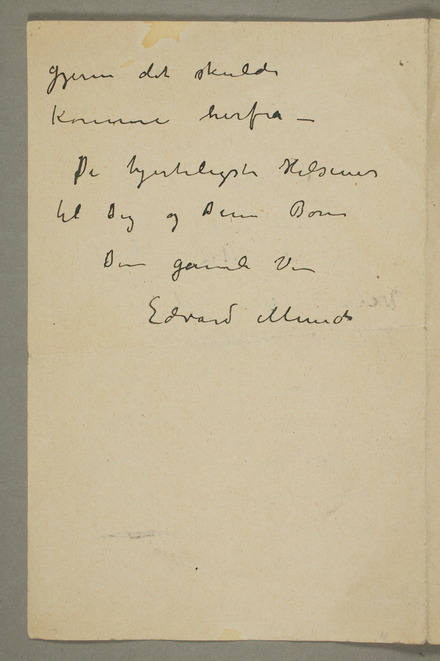 gjerne det skulde
komme herfra –
De hjerteligste Hilsener
til Dig og Dine Børn
Din gamle Ven
Edvard Munch